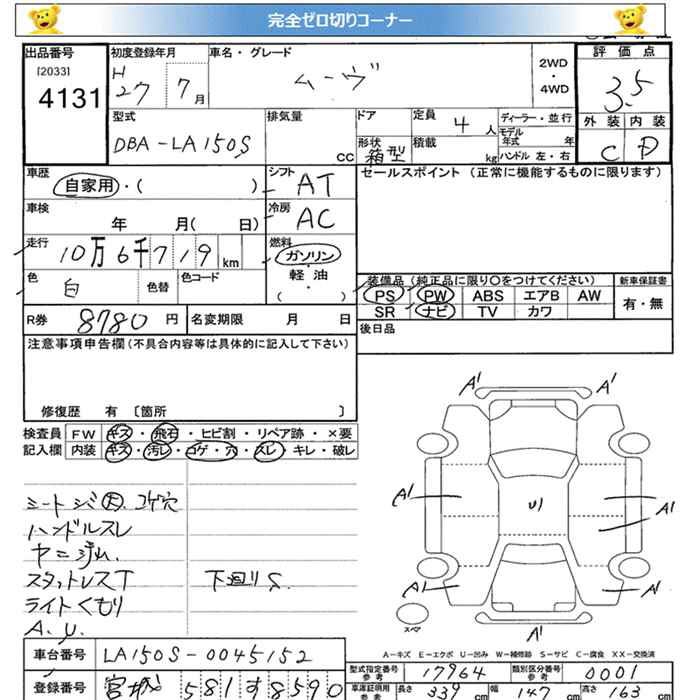 完全ゼロ切りコーナー
出品番号 初度登録年月 車名・グレード 2WD・4WD 評価点
[2033]
4131
H27 7月 ムーヴ 3.5
型式 排気量 ドア 定員 4人 ディーラー・並行 外装 内装
DBA-LA150S cc 形状 箱型 積載 kg モデル年式 年 ハンドル 左・右 C D
車歴 自家用・( ) シフト AT セールスポイント (正常に機能するものに限ります)
車検 年 月( 日) 冷房 AC
走行 10万6千719km 燃料 ガソリン
軽・油
・( )
色 白 色替 色コード
装備品(純正品に限り〇をつけてください) 新車保証書
PS PW ABS エアB AW 有・無
SR ナビ TV カワ
R券 8780円 名変期限 月 日 後日品
注意事項申告欄(不具合内容等は具体的に記入して下さい)
修復歴 有 〔箇所 〕
検査員 FW キズ・飛石・ヒビ割・リペア跡・×要
記入欄 内装 キズ・汚レ・コゲ・穴・スレ・キレ・破レ
シートシミ大 コゲ穴
ハンドルスレ
ヤニ汚れ.
スタットレスT 下廻りS
ライトくもり
A.U.
A1 A1
A1 U1 A1 A1
A1 A1
スペア A1
A-キズ E-エクボ U-凹み W-補修跡 S-サビ C-腐食 XX-交換済
車台番号 LA150S-0045152
型式指定番号 参考 17964 類別区分番号 参考 0001
登録番号 宮城 581 す 8590
車庫証明用 参考 長さ 339cm 幅 147cm 高さ 163cm